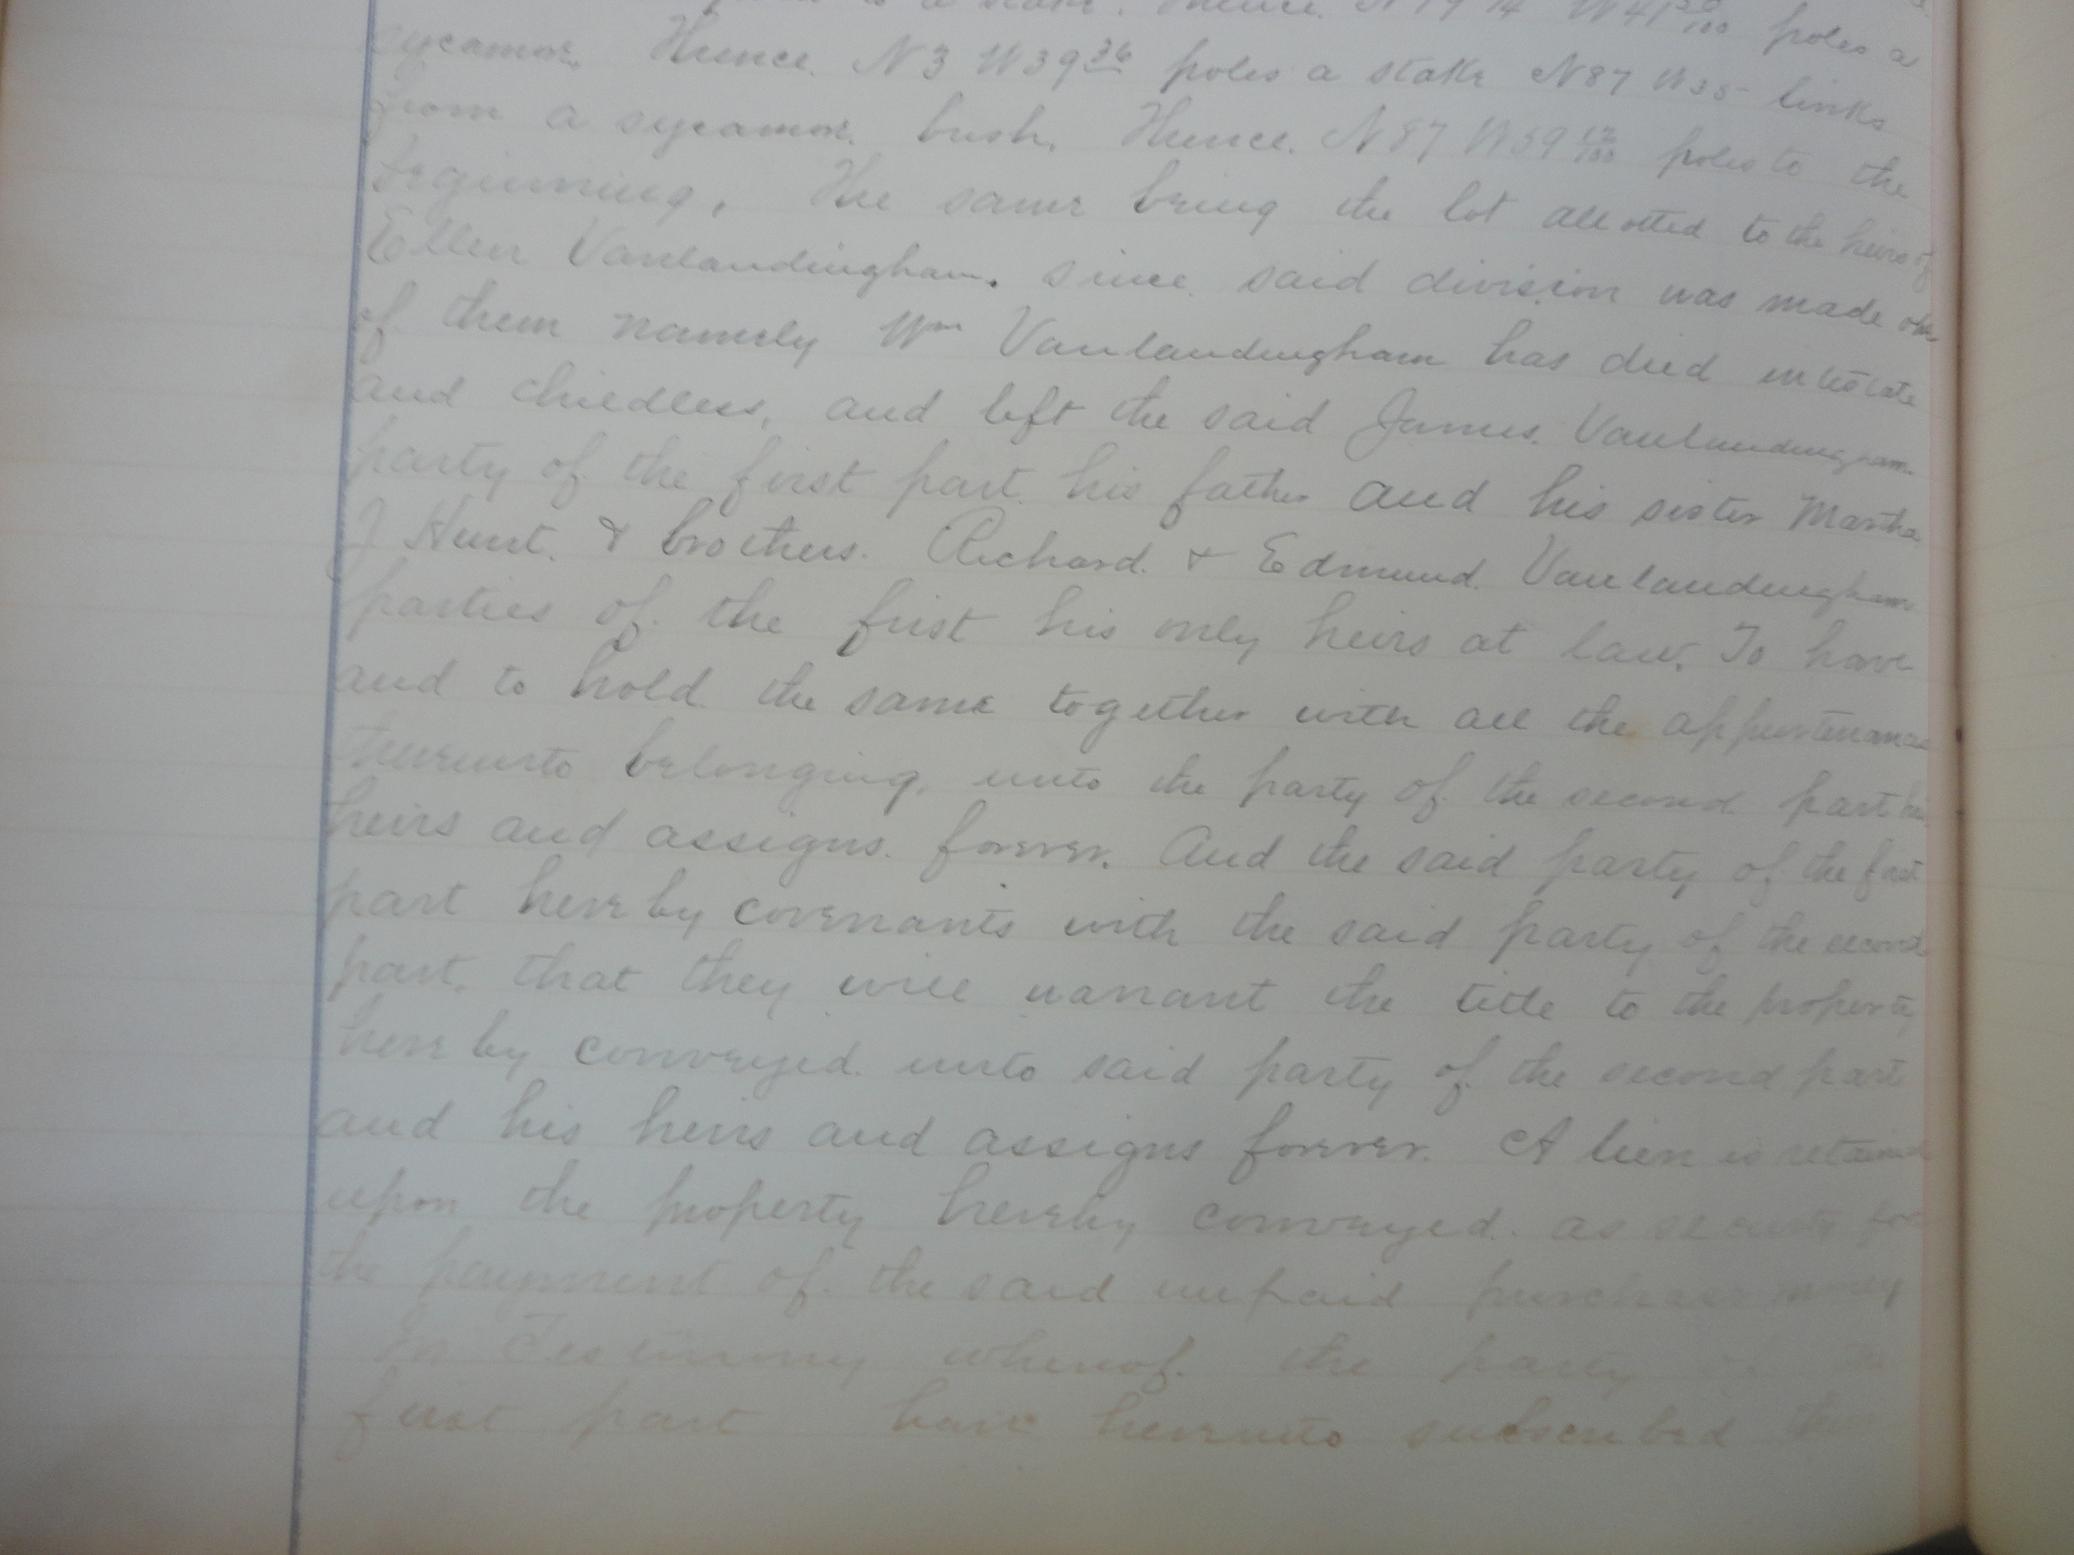 to a stake. Thence. N 19 1/4 W 41 30/100 poles a
sycamore. Thence. N 3 W 39 36 poles a stake N 87 W 35 links
from a sycamore. bush, Thence. N 87 W 59 12/100 poles to the
beginning, The same being the lot allotted to the heirs of
Ellen Vanlandingham. since. said division was made one
of them namely Wm Vanlandingham has died intestate
and childless, and left the said James. Vanlandingham.
party of the first part. his father and his sister Martha
J Hunt. & brothers. Richard. & Edmund. Vanlandingham
parties of. the first his only heirs at law. To have
and to hold the same together with all the appurtenances
thereunto belonging, unto the party of the second part his
heirs and assigns. forever. And the said party of the first
part hereby covenants with the said party of the second
part. that they will warrant the title to the property
hereby conveyed. unto said party of the second part
and his heirs and assigns forever. A lien is retained
upon the property hereby conveyed. as security for
the payment of. the said unpaid purchase money
In Testimony whereof. the party of the
first part have hereunto subscribed their